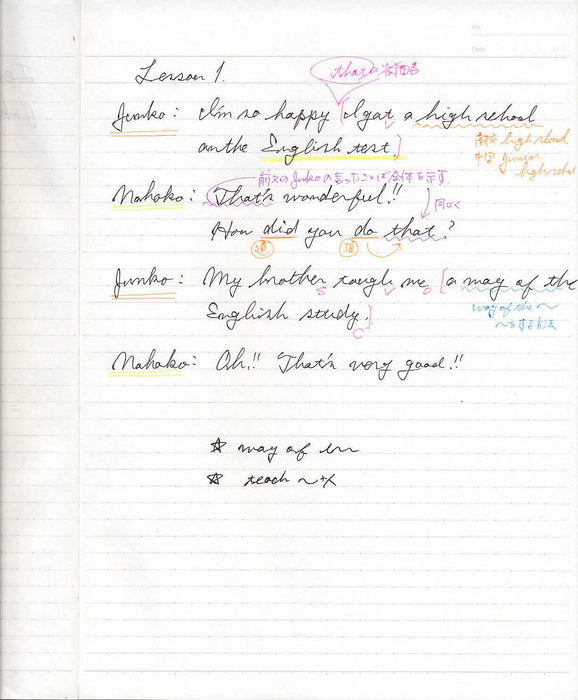 Lesson 1.
thatの省略
Junko: I'm so happy [I got a high school
on the English test.]
high school
junior
high school
前文のJunkoの言ったことば全体を示す
Nahoko: That's wonderful!!
同じく
How did you do that?
Junko: My brother taugh me [a way of the
S V O
English study.]
C
way of the ～
～する方法
Nahoko: Oh!! That's very good!!
☆ way of
☆ teach ～+